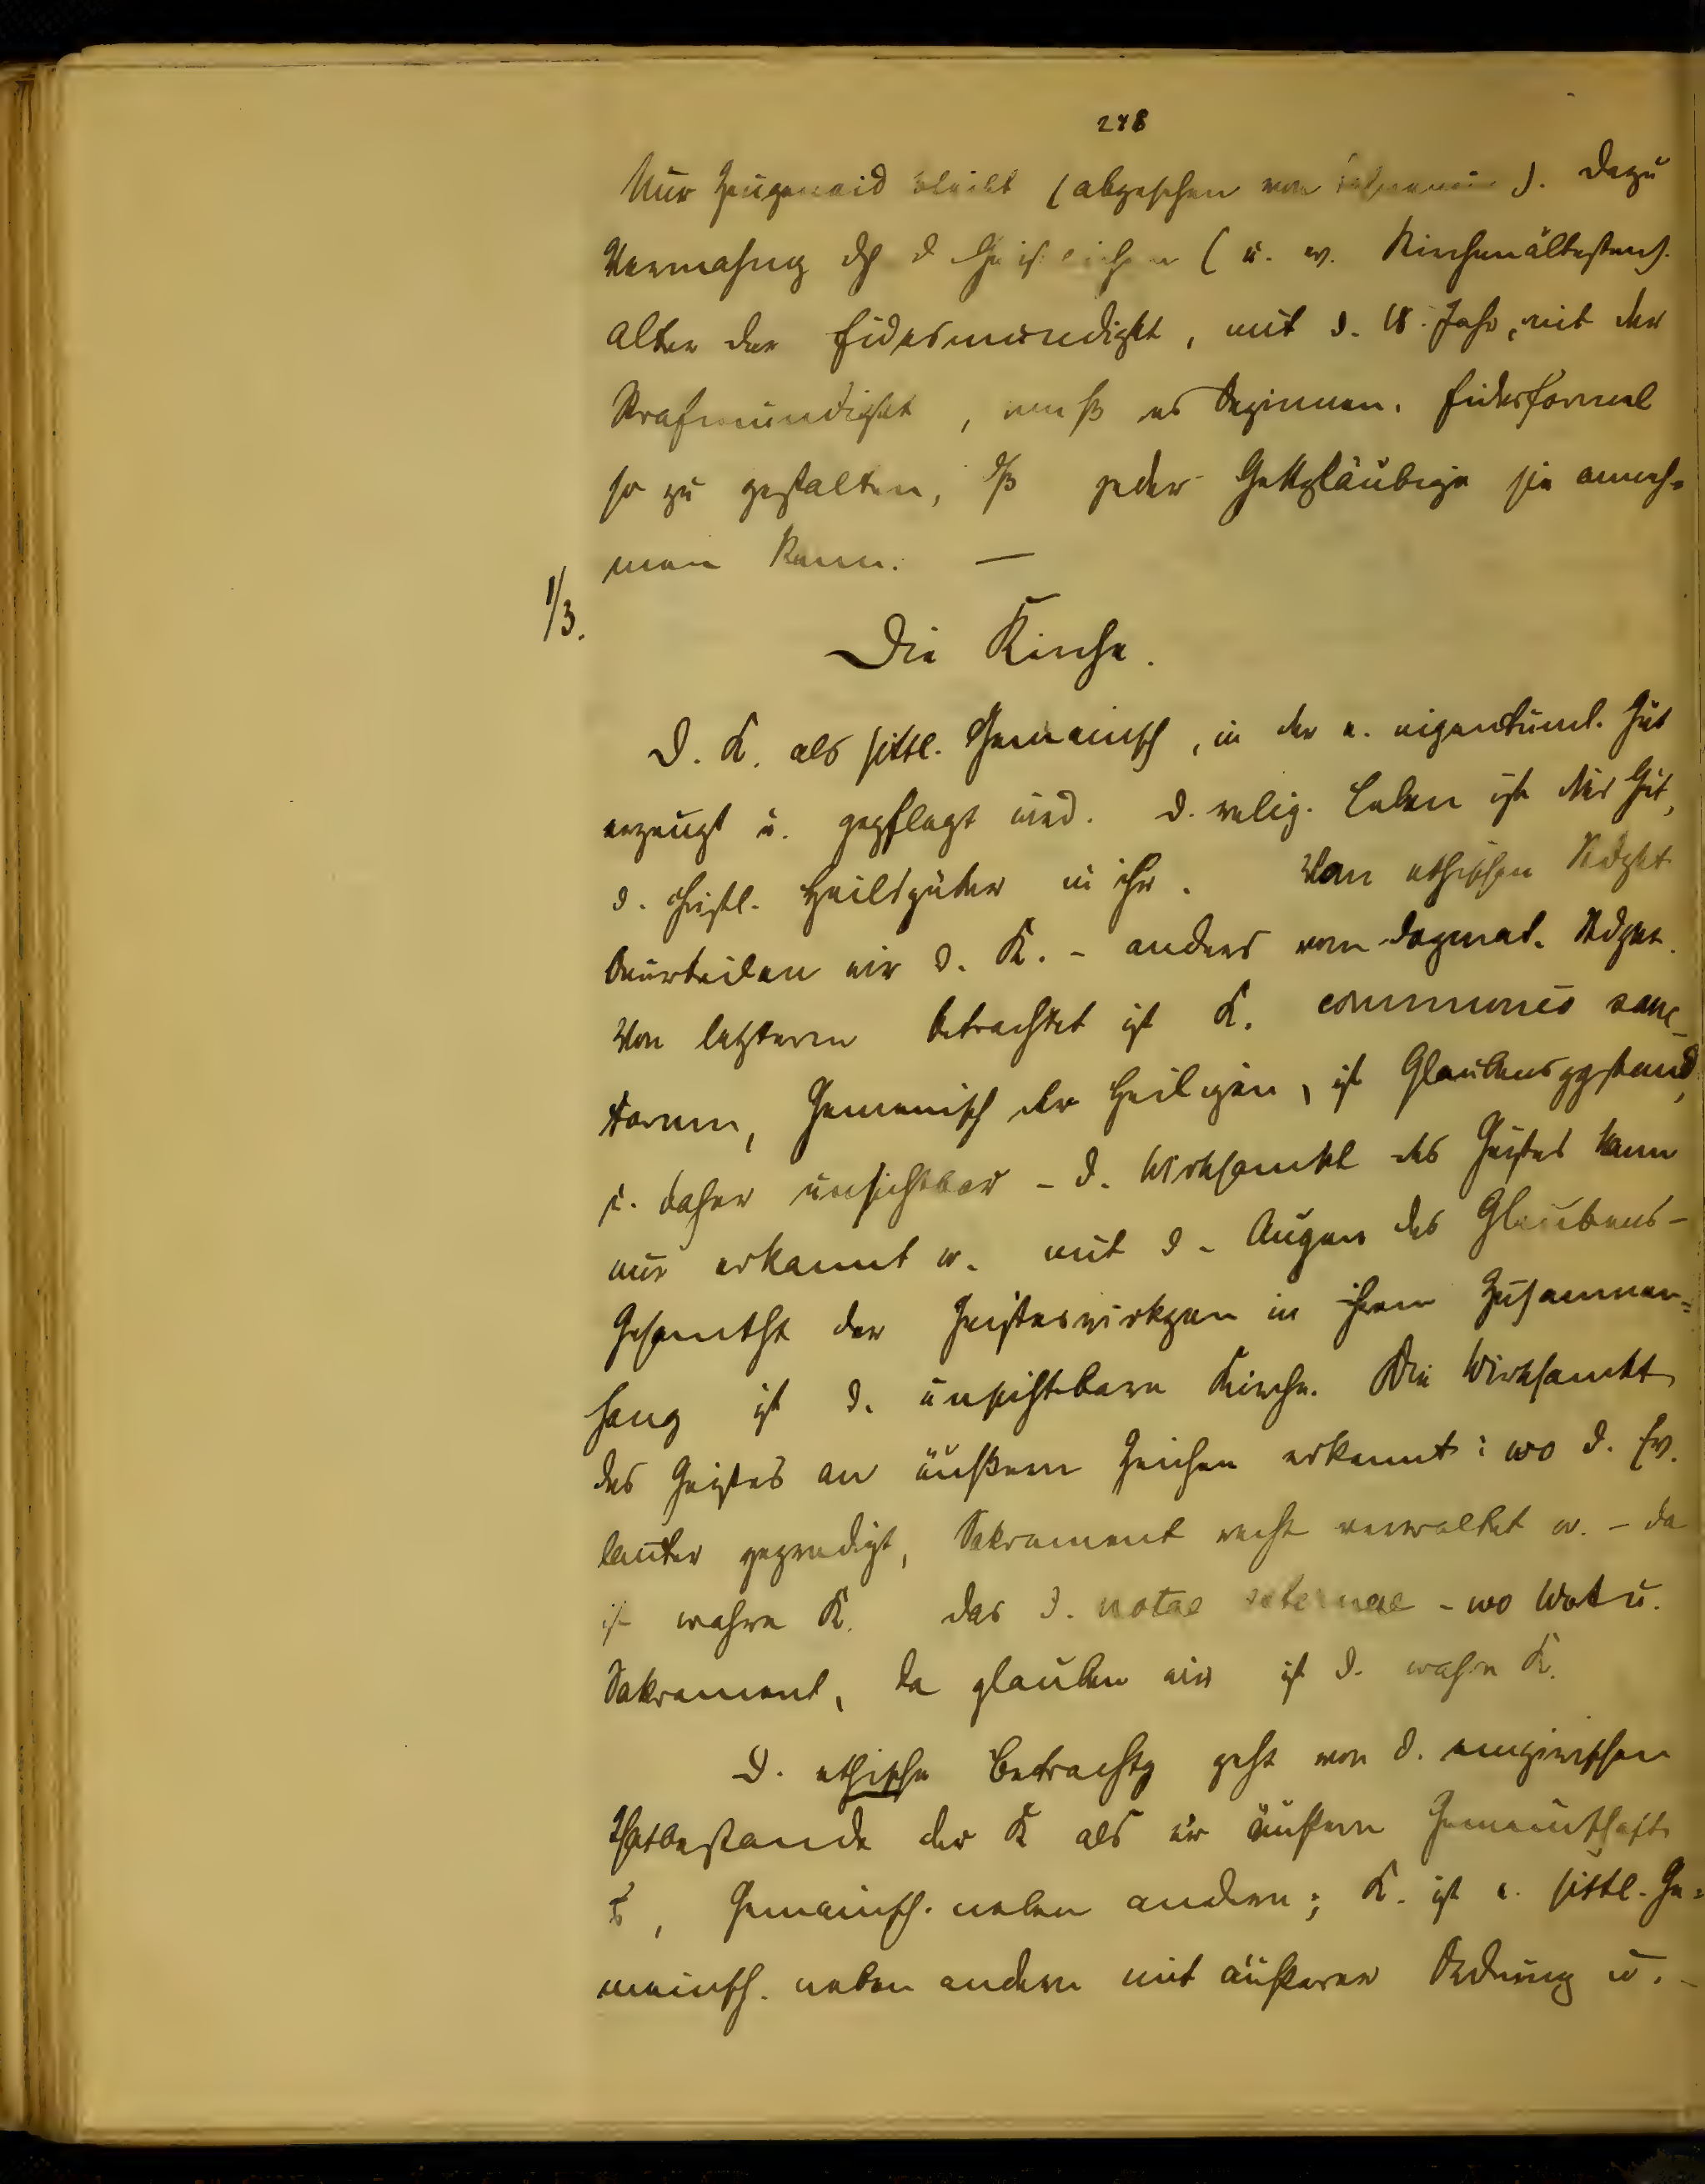 278
Nur Zeugeneid bleibt (abgesehen von ). Dazu
Vermahng dch d Geistlichen (u. w. Kirchenältesten).
Alter der Eidesmündigkt, mit d. 18. Jahr, mit der
Strafmündigkt, muß es beginnen. Eidesformel
so zu gestalten, dß jeder Gottgläubige sie anneh=
men kann. —
1/3.
Die Kirche.
D. K. als sittl. Gemeinsch, in der e. eigentüml. Gut
erzeugt u. gepflegt wird. D. relig. Leben ist dies Gut,
d. christl. Heilsgüter in ihr. Vom ethischen Stdpkt
beurteilen wir d. K. - anders vom dogmat. Stdpkt.
Von letzterm betrachtet ist K. communio sanc-
torum, Gemeinsch der Heiligen, ist Glaubensggstand,
u. daher unsichtbar - d. Wirksamkt des Geistes kann
nur erkannt w. mit d. Augen des Glaubens -
Gesamtht der Geisteswirkgen in ihrem Zusammen=
hang ist d. unsichtbare Kirche. Die Wirksamkt
des Geistes an äußern Zeichen erkannt: wo d. Ev.
lauter gepredigt, Sakrament recht verwaltet w. - da
ist wahre K. das d. notae externae - wo Wort u.
Sakrament, da glauben wir ist d. wahre K.
D. ethische Betrachtg geht von d. empirischen
Thatbestande der K als er äußern Gemeinschaft
, Gemeinsch. neben andern; K. ist e. sittl. Ge=
meinsch. neben andern mit äußerer Ordnung u. -